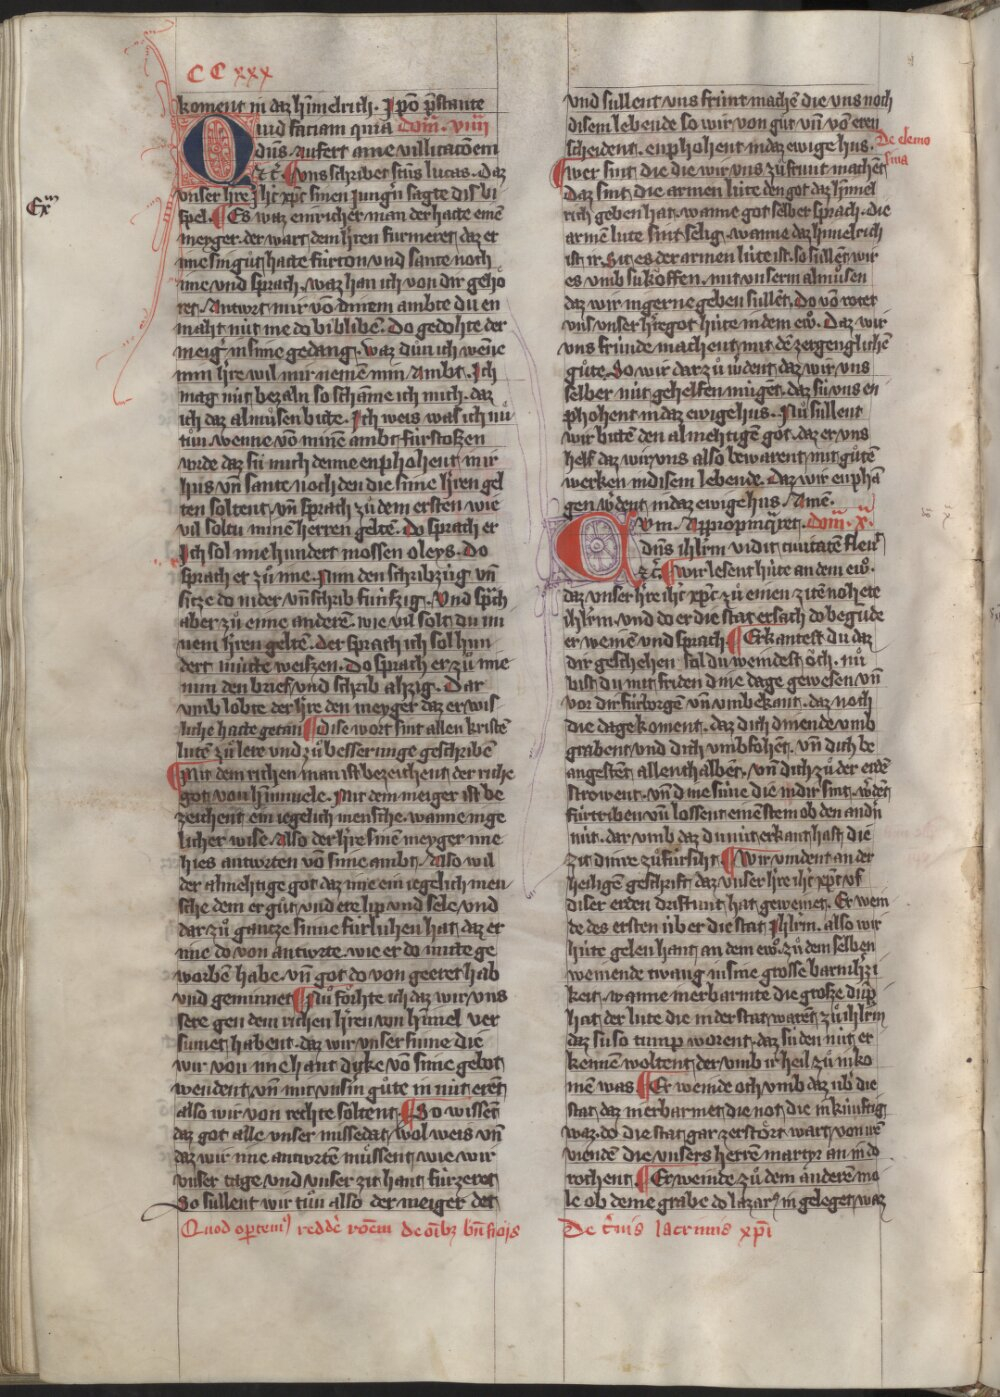 CC xxx
koment in daz hīmelrich. Ip̄o p̄stante
Quid faciam quia Dom̄. viiii
dn̄s. Aufert a me villicatōem
⁊ c̄. ¶ Uns schribet sanctus lucas. Daz
unser h're ih'c xp̄c sinen iungn̄ sagte dis bi
spel. ¶ Es waz ein richer man der hatte einē
meyger. der wart dem h'ren furmeret daz er
ime sin gut hatte fürton und sante noch
ime und sprach. waz han ich von dir gehö
ret. Antwrt mir vō dinem ambte du en
maht nüt me do bi bliben. Do gedohte der
meig' in sime gedang. waz dün ich wene
min h're wil mir nemen min Ambt. Ich
mag nüt bezaln so schame ich mich. daz
ich daz almůsen bitte. Ich weis was ich nů
tün. wenne vō minē ambt fürstoßen
wrde daz sü mich denne enphohent in ir
hus un̄ sante noch den die sime h'ren gel
ten soltent. un̄ sprach zů dem ersten wie
vil soltu minē herren geltē. Do sprach er
Ich sol ime hundert mossen oleys. Do
sprach er zů ime. Nim den schribzüg un̄
sitze do nider un̄ schrib fünfzig. Und sp̄ch
aber zů eime anderē. wie vil solt du mi
nem h'ren geltē. Der sprach ich sol hun
dert mütte weißzen. Do sprach er zů ime
nim den brief und schrib ahzig. Dar
umb lobte der h're den meyger daz er wis
liche hatte getan ¶ Dise wort sint allen kristē
lutē zů lere und zů besserunge geschribē
¶ Mit dem richen man ist bezeichent der riche
got von himmele. Mit dem meiger ist be
zeichent ein iegelich mensche. wanne inge
licher wise. Also der h're sinē meyger ime
hies antwrten vō sime ambt. Also wil
der almehtige got daz ime ein iegelich men
sche dem er gůt und ere lip und sele und
dar zů gantze sinne fürluhen hat daz er
ime do von antwrte. wie er do mitte ge
worbē habe. un̄ got do von geeret hab
und geminnet ¶ Nů förhte ich daz wir uns
sere gen dem richen h'ren von himel ver
sumet habent. daz wir unser sinne die
wir von ime hant dicke vō sime gebot
wendent. un̄ mit unsīn gůte in nüt erēt
also wir von rechte soltent. ¶ So wissent
daz got alle unser missedat wol weis un̄
daz wir ime antwrtē müssent wie wir
unser tage und unser zit hant fürzeret
So sullent wir tün also der meiger det
Quod oportem' redde' rōem de oībz bn̄ficijs
und sullent uns frünt machē die uns noch
disem lebende so wir von gůt un̄ vō eren
scheident. enphohent in daz ewige hus.
De elemo
sina
¶ Wer sint die die wir uns zů frünt machēt
Daz sint die armen lüte den got daz hīmel
rich geben hat. wanne got selber sprach. die
armē lute sint selig. wanne daz himelrich
ist ir. Sit es der armen lüte ist. so sullēt wir
es umb sü köffen. mit unserm almůsen
daz wir in gerne geben sullēt. Do vō rotet
uns unser h'regot hüte in dem ew̄. Daz wir
uns fründe machent mit dē zergenglichē
gůte. So wir dar zů w'dent daz wir uns
selber nüt gehelfen mügēt. daz sü uns en
phohent in daz ewige hus. Nů sullent
wir bitē den almehtigē got. daz er uns
helf daz wir uns also bewarent mit gůten
werken in disem lebende. Daz wir enpha
gen w'dent in daz ewige hus. Amē.
Cum. Appropinq̄ret. Dom̄. x.
dn̄s ihl'rm vidit ciuitatē fleu'
⁊ c̄. ¶ Wir lesent hüte an dem ew̄.
daz unser h're ih'c xp̄c zů einen zitē nohete
ihl'rm und do er die stat ersach do begūde
er weinē und sprach ¶ Erkantest du daz
dir geschehen sol du weindest öch. nů
bist du mit friden dine dage gewesen un̄
vor dir fürborgē un̄ unbekant. daz noch
die dage koment. daz dich din ende umb
grabent und dich umbfohēt. un̄ dich be
angestēt allenthalben. un̄ dich zů der erdē
strowent. un̄ dine süne die in dir sint. w'dēt
fürtriben un̄ lossent einē stein ob den and'n
nüt. dar umb daz du nüt erkant hast die
zit dinre zůfürsiht. ¶ Wir vindent an der
heiligē geschrift. daz unser h're ih'c xp̄c uf
diser erden dristunt hat geweinet. Er wein
de des ersten über die stat ihl'rm. also wir
hüte gelen hant an dem ew̄. zů dem selben
weinende twang in sine grosse barmh'zi
keit. wanne in erbarmte die große
hat der lute die in der stat warēt zů ihl'rm
daz sü so tump worent. daz sü den nüt er
kennē woltent. der umb ir heil zů in ko
mē was ¶ Er weinde och umb daz üb' die
stat. daz in erbarmet die not. die in künftig
waz. do die stat gar zerstört wart. von irē
vienden die unsers herrē martyr an im do
rochent. ¶ Er weinde zů dem anderē mo
le ob deme grabe do lazar' in geleget waz
De t'nis lacrimis xp̄i